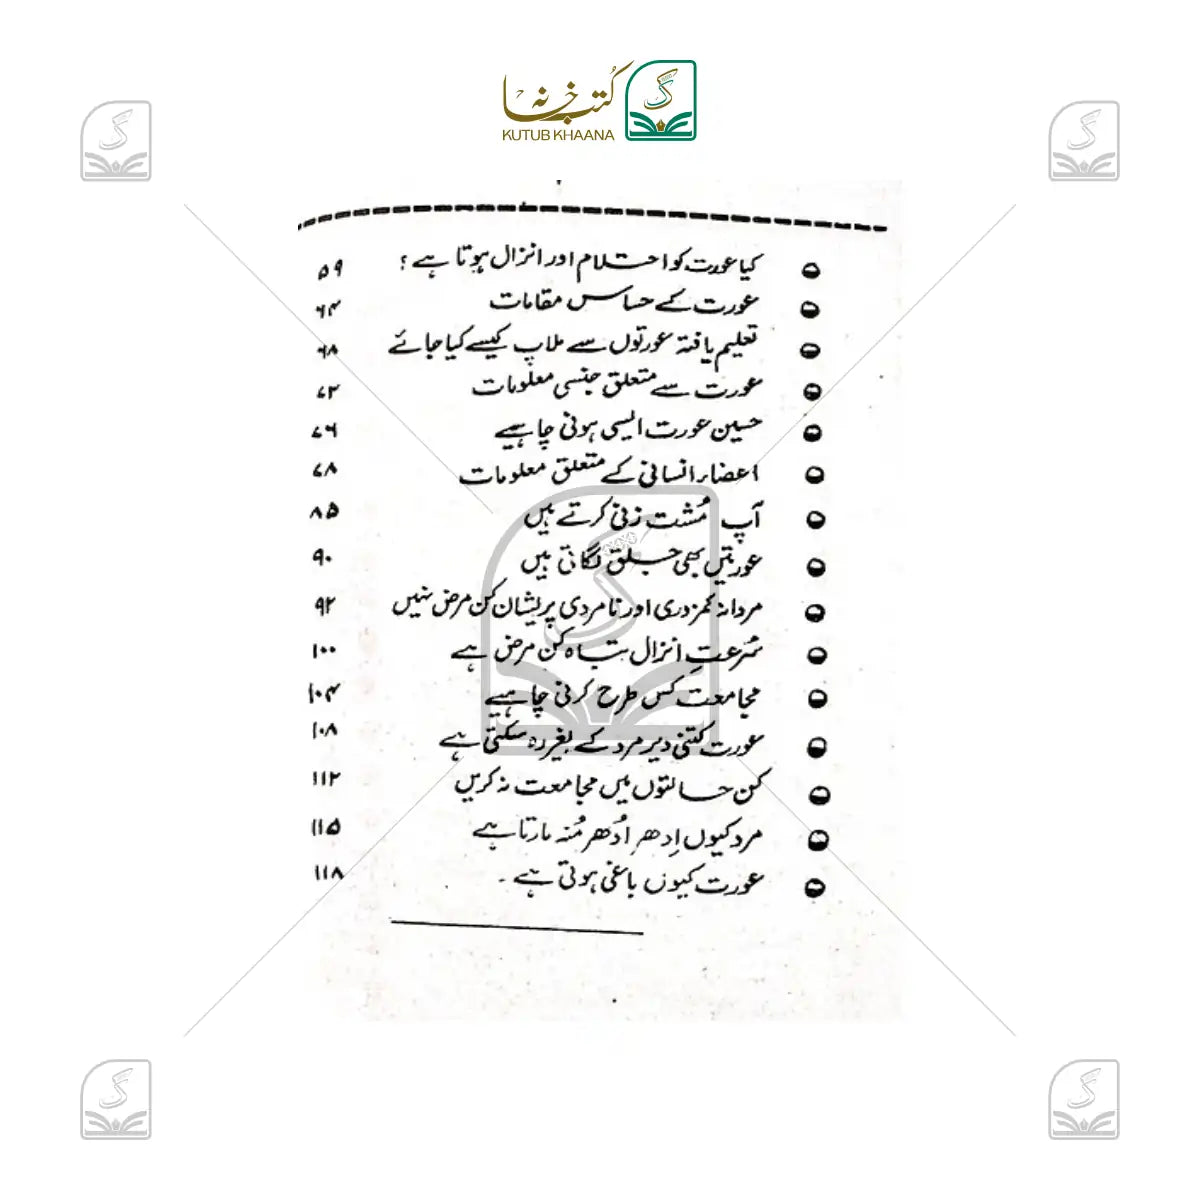 کتب خانہ
KUTUB KHAANA
کیا عورت کو احتلام اور انزال ہوتا ہے؟ ۵۹
عورت کے حساس مقامات ۶۴
تعلیم یافتہ عورتوں سے ملاپ کیسے کیا جائے ۶۸
عورت سے متعلق جنسی معلومات ۷۲
حسین عورت ایسی ہونی چاہیے ۷۶
اعضاء انسانی کے متعلق معلومات ۷۸
آپ مُشت زنی کرتے ہیں ۸۵
عورتیں بھی جلق لگاتی ہیں ۹۰
مردانہ کمزوری اور نامردی پریشان کن مرض نہیں ۹۲
سُرعتِ انزال تباہ کن مرض ہے ۱۰۰
مجامعت کس طرح کرنی چاہیے ۱۰۴
عورت کتنی دیر مرد کے بغیر رہ سکتی ہے ۱۰۸
کن حالتوں میں مجامعت نہ کریں ۱۱۲
مرد کیوں اِدھر اُدھر مُنہ مارتا ہے ۱۱۵
عورت کیوں باغی ہوتی ہے۔ ۱۱۸